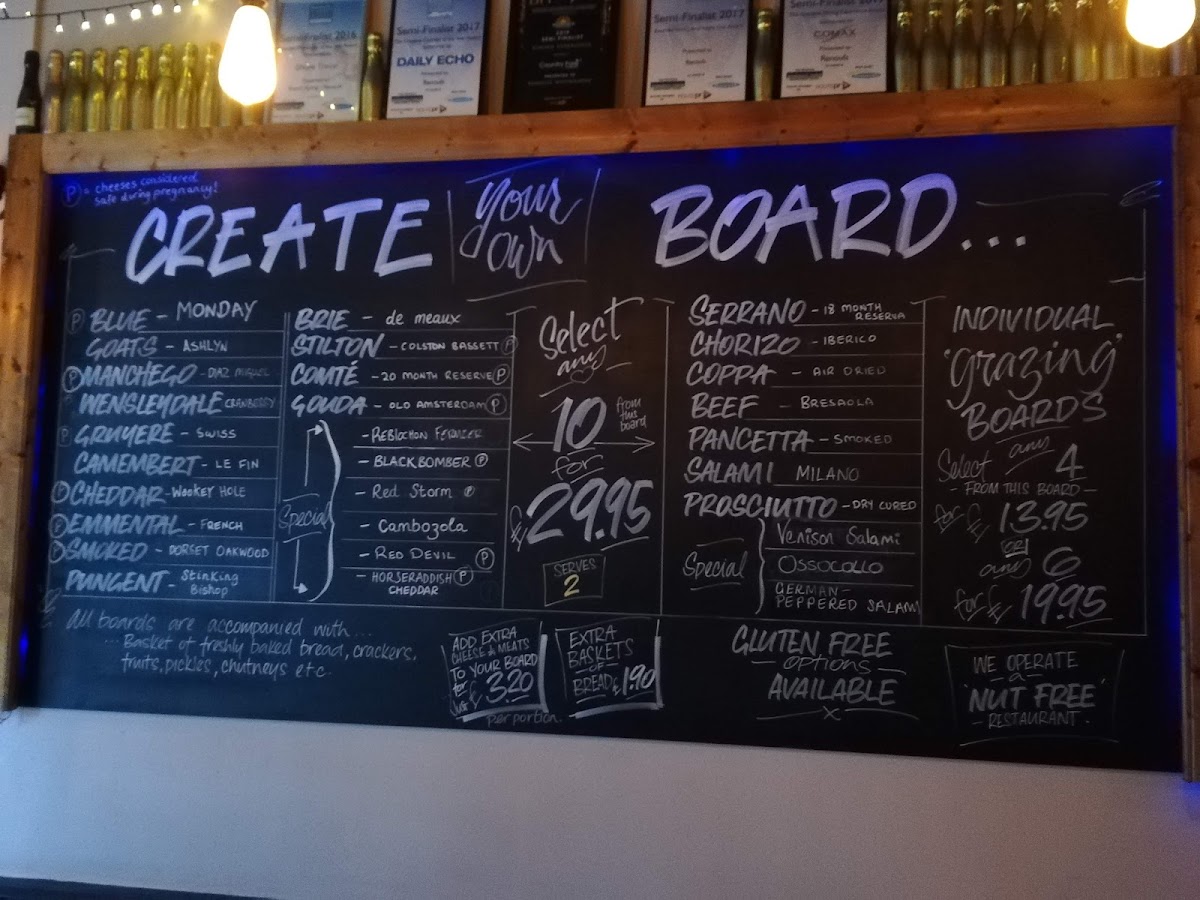 Semi-Finalist 2016
Semi-Finalist 2017
DAILY ECHO
Semi-Finalist 2017
COMAX
P = cheeses considered
safe during pregnancy!
CREATE your own BOARD...
P BLUE - MONDAY
GOATS - ASHLYN
P MANCHEGO - DIAZ MIGUEL
WENSLEYDALE CRANBERRY
P GRUYERE - SWISS
CAMEMBERT - LE FIN
P CHEDDAR - WOOKEY HOLE
P EMMENTAL - FRENCH
P SMOKED - DORSET OAKWOOD
PUNGENT - Stinking
Bishop
BRIE - de meaux
STILTON - COLSTON BASSETT P
COMTÉ - 20 MONTH RESERVE P
GOUDA - OLD AMSTERDAM P
Special
- REBLOCHON FERMIER
- BLACKBOMBER P
- Red Storm P
- Cambozola
- RED DEVIL P
- HORSERADDISH P
CHEDDAR
Select
any
10 from this board
for
£29.95
SERVES
2
SERRANO - 18 MONTH
RESERVA
CHORIZO - IBERICO
COPPA - AIR DRIED
BEEF - BRESAOLA
PANCETTA - SMOKED
SALAMI MILANO
PROSCIUTTO - DRY CURED
Special
Venison Salami
OSSOCOLLO
GERMAN-
PEPPERED SALAMI
INDIVIDUAL
'grazing'
BOARDS
Select any 4
- FROM THIS BOARD -
for £13.95
or
any 6
for £19.95
All boards are accompanied with...
... Basket of freshly baked bread, crackers,
fruits, pickles, chutneys etc.
ADD EXTRA
CHEESE & MEATS
TO YOUR BOARD
for £3.20
per portion.
EXTRA
BASKETS
OF
BREAD £1.90
GLUTEN FREE
- options -
AVAILABLE
x
WE OPERATE
a
'NUT FREE'
- RESTAURANT -